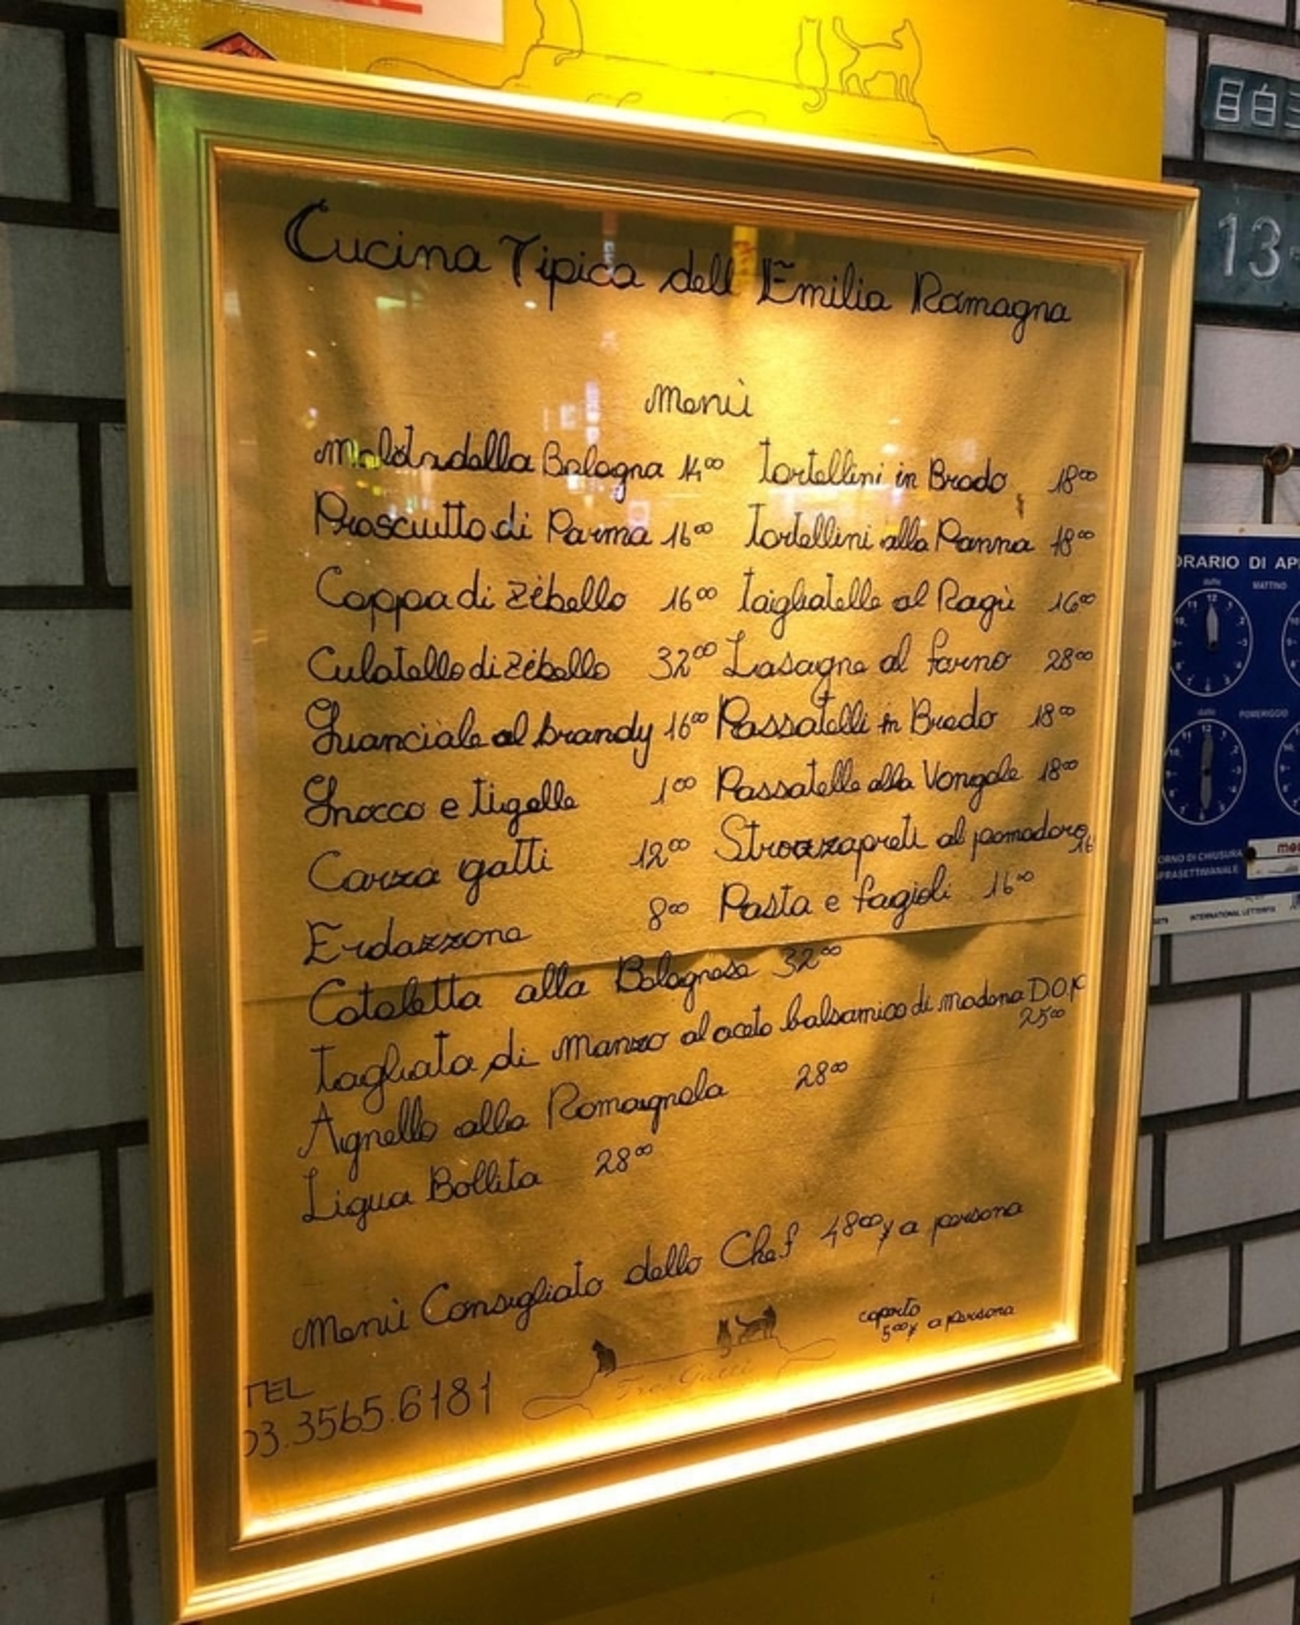 Cucina Tipica dell Emilia Romagna
Menù
Bologna 14⁰⁰ Tortellini in Brodo 18⁰⁰
Prosciutto di Parma 16⁰⁰ Tortellini alla Panna 18⁰⁰
Coppa di Zibello 16⁰⁰ Taigliatelle al Ragù 16⁰⁰
Culatello di Zibello 32⁰⁰ Lasagne al farno 28⁰⁰
Guanciale al brandy 16⁰⁰ Passatelli in Brodo 18⁰⁰
Gnocco e tigelle 1⁰⁰ Passatelle alla Vongole 18⁰⁰
Carza gatti 12⁰⁰ Strozzapreti al pomodoro 16
Erdazzone 8⁰⁰ Pasta e fagioli 16⁰⁰
Cotoletta alla Bolognese 32⁰⁰
Tagliata di Manzo al aceto balsamico di modena D.O.P
25⁰⁰
Agnello alla Romagnola 28⁰⁰
Ligua Bollita 28⁰⁰
Menù Consigliato dello Chef 4800y a persona
coperto
500y a persona
TEL
03.3565.6181
Tre Gatti
白
13
ORARIO DI AP
dalle MATTINO
dalle POMERIGGIO
ORNO DI CHIUSURA
PRASETTIMANALE
INTERNATIONAL